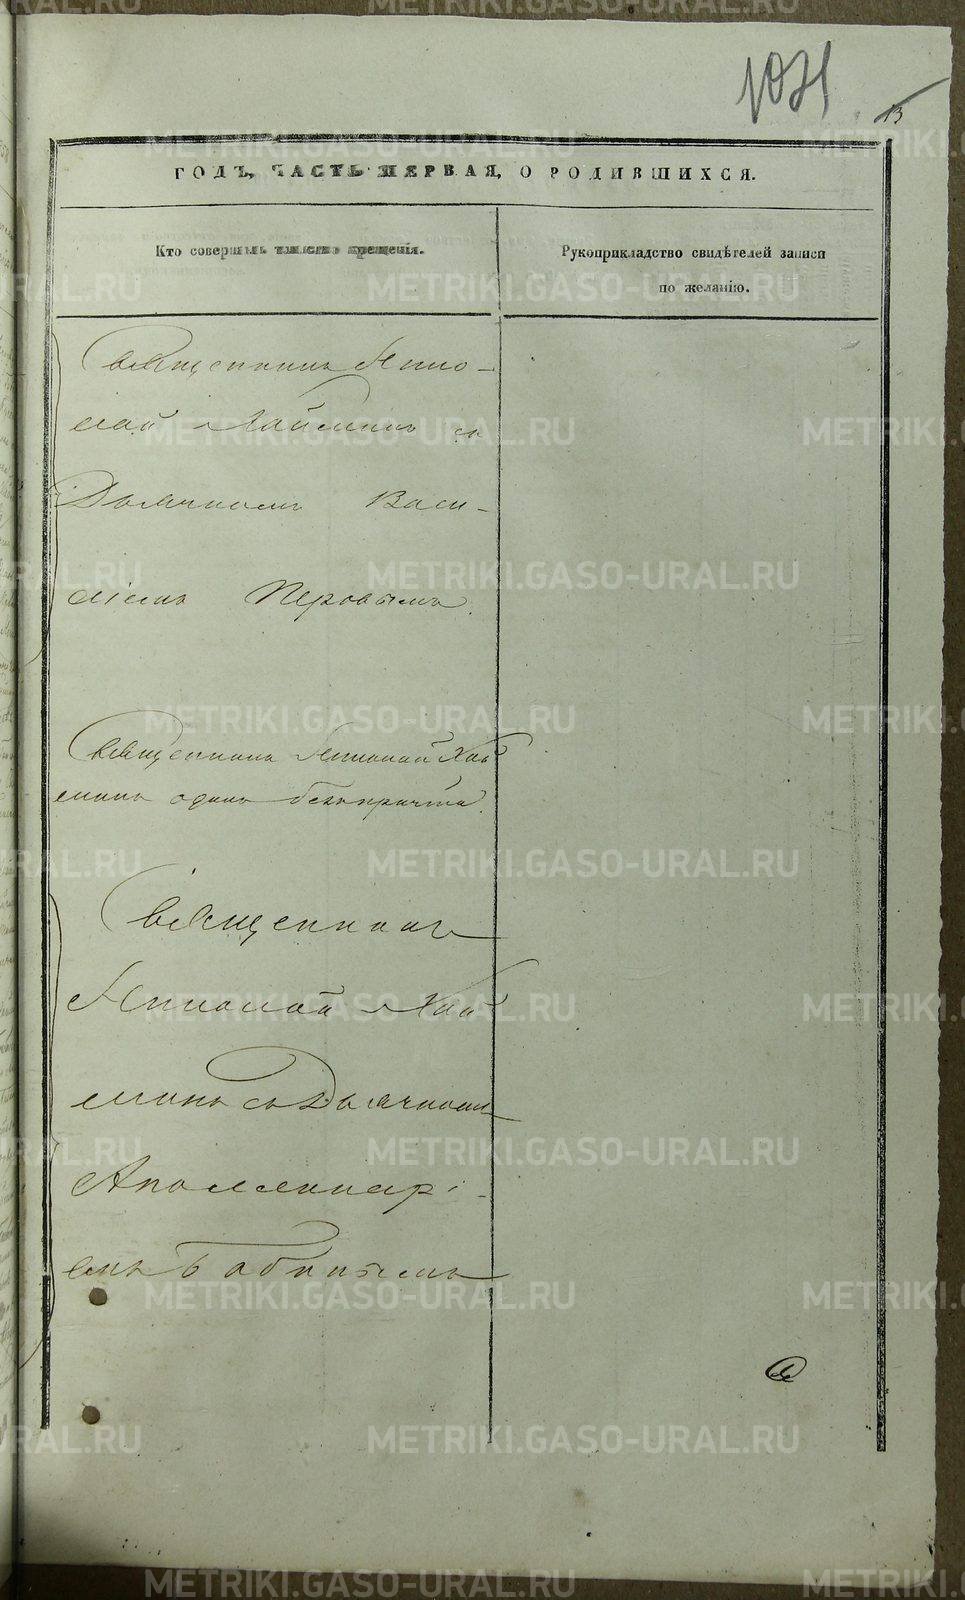 1021
13
ГОДЪ, ЧАСТЬ ПЕРВАЯ, О РОДИВШИХСЯ.
Кто совершалъ таинство крещенія.
Рукоприкладство свидѣтелей записи
по желанію.
Священникъ Нико-
лай Хайминъ съ
Дьячкомъ Васи-
ліемъ Перовымъ.
Священникъ Николай Хай
минъ одинъ безъ причта.
Священникъ
Николай Хай
минъ съ Дьячкомъ
Аполлинарі-
емъ Бабинымъ
METRIKI.GASO-URAL.RU